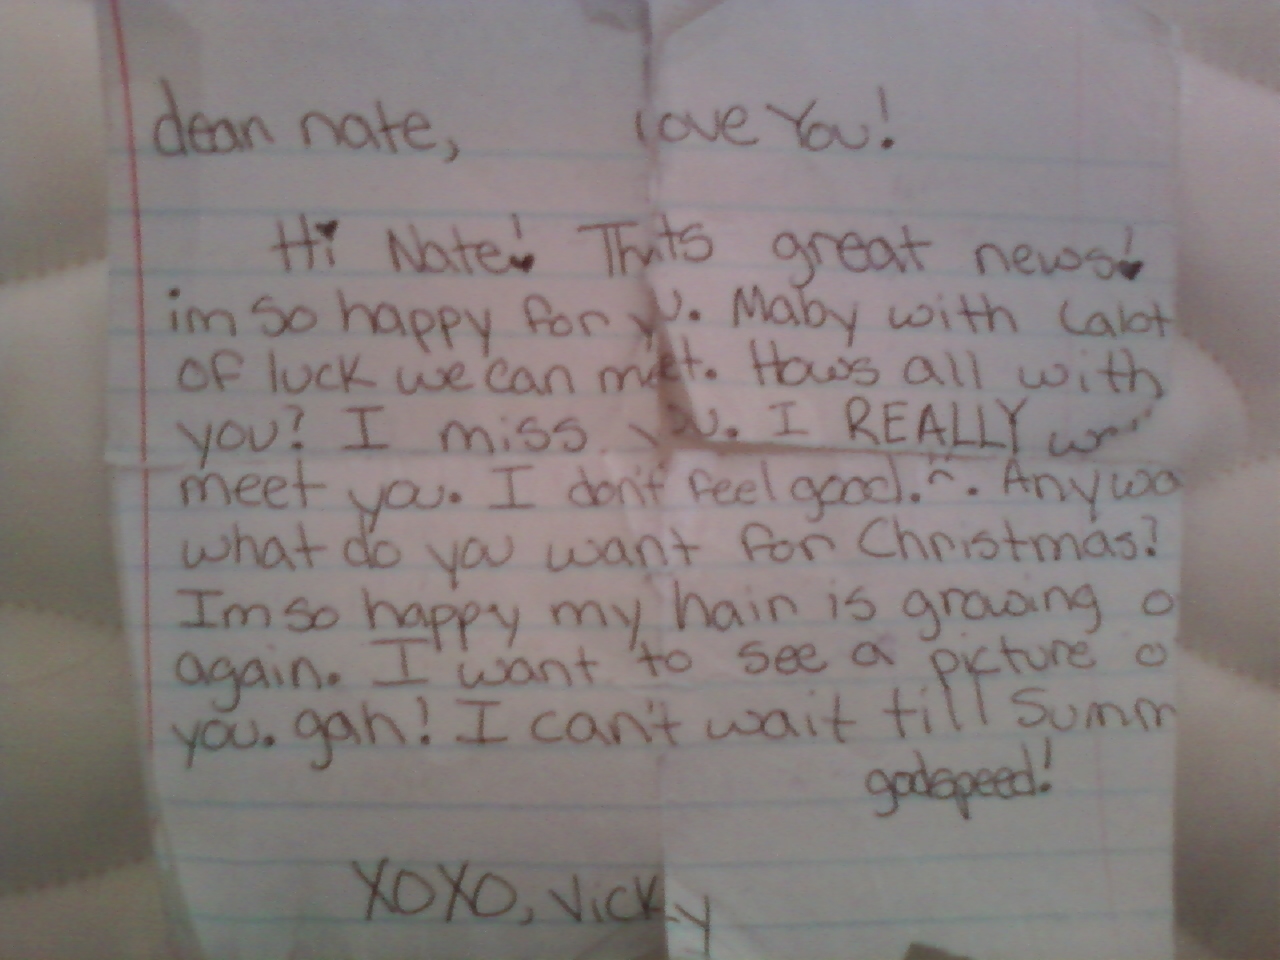 dear nate, love You!
Hi Nate! Thats great news!
im so happy for yu. Maby with Lalot
of luck we can meet. Hows all with
you? I miss you. I REALLY
meet you. I don't feel good.^. Anywa
what do you want for Christmas?
Im so happy my hair is growing o
again. I want to see a picture o
you. gah! I can't wait till Summ
godspeed!
XOXO, Vicky